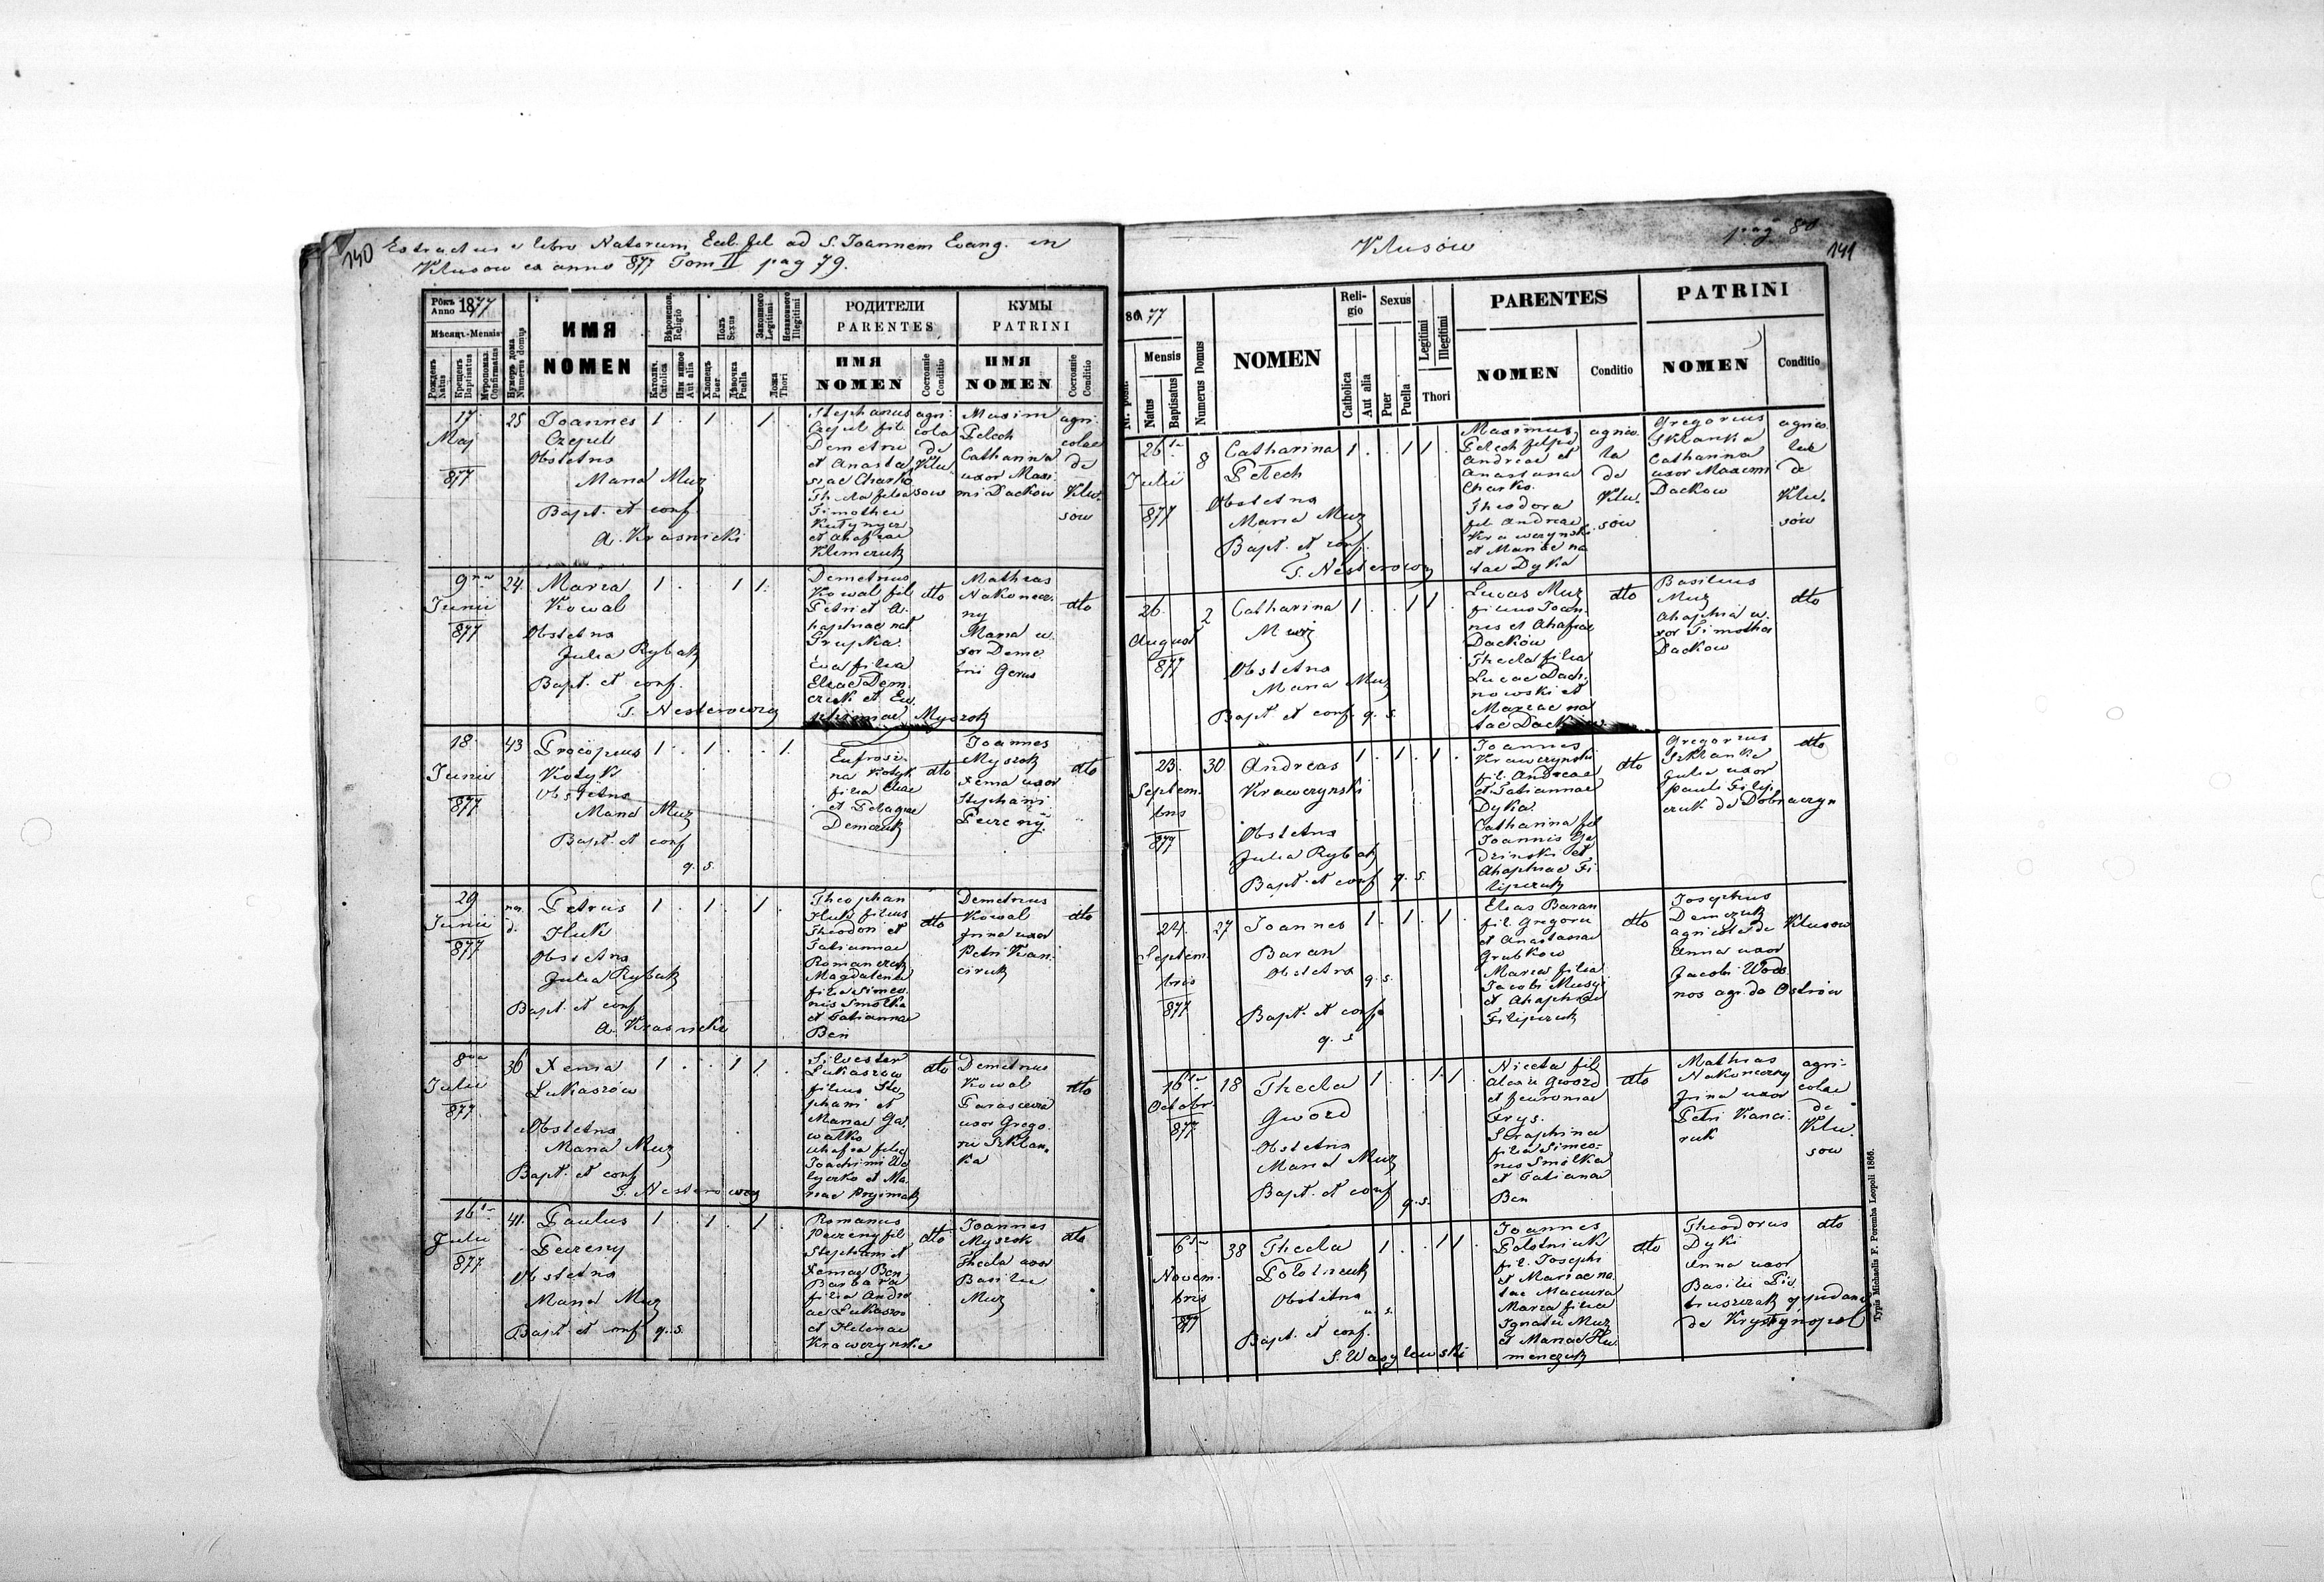 140 Extractus e libro Natorum Eccl. fil ad S. Joannem Evang. in
Klusow ex anno 877 Tom II pag 79.
Рôкъ Anno 1877
Мѣсяцъ-Mensis
Рожденъ Natus
Крещенъ Baptisatus
Мѵропомаз. Confirmatus
Нумеръ дома Numerus domus
ИМЯ
NOMEN
Вѣроиспов. Religio
Католич. Catolica
Или инное Aut alia
Полъ Sexus
Хлопецъ Puer
Дѣвочка Puella
Законного Legitimi
Незаконного Illegitimi
Ложа Thori
РОДИТЕЛИ
PARENTES
ИМЯ
NOMEN
Состояніе Conditio
КУМЫ
PATRINI
ИМЯ
NOMEN
Состояніе Conditio
17
Maj
877
25
Joannes
Czepil
Obstetrix
Maria Muz
Bapt. et conf.
A. Krasnicki
1 . 1 . 1 .
Stephanus
Czepil fil
Demetrii
et Anasta
siae Charko
Thecla filia
Timothei
Kutynycz
et Ahafiae
Klimczuk
agri
cola
de
Klu
sow
Maxim
Pelech
Catharina
uxor Maxi
mi Dackow
agri
colae
de
Klu
sow
9na
Junii
877
24.
Maria
Kowal
Obstetrix
Julia Rybak
Bapt. et conf.
T. Nesterowicz
1 . . 1 1 .
Demetrius
Kowal fil
Petri et A.
haphiae nat
Hrupka
Eva filia
Eliae Dem
czuk et Eu
Myszok
dto
Mathias
Nakonecz
ny
Maria u
xor Deme
trii Gerus
dto
18
Junii
877
43
Procopius
Kotyk
Obstetrix
Maria Muz
Bapt. et conf
q. s.
1 . 1 . . 1.
Eufrosi
na Kotyk
filia Eliae
et Pelagiae
Demczuk
dto
Joannes
Myszok
Xenia uxor
Stephani
Peireny
dto
29
Junii
877
Petrus
Huk
Obstetrix
Julia Rybak
Bapt. et conf
A. Krasnicki
1 . 1 . 1 .
Theophan
Huk filius
Theodori et
Tatiannae
Romanczuk
Magdalena
filia Simeo
nis Smolka
et Tatiannae
Ben
dto
Demetrius
Kowal
Irina uxor
Petri Kan
ciruk
dto
8va
Julii
877
36
Xenia
Lukaszów
Obstetrix
Maria Muz
Bapt. et conf
T. Nesterowicz
1 . . 1 1 .
Silvester
Lukaszow
filius Ste
phani et
Mariae Ga
watko
Ahafia filia
Joachimi
et Ma
riae Pryjmak
dto
Demetrius
Kowal
Parascevia
uxor Grego
rii Szklan
ka
dto
16ta
Julii
877
41.
Paulus
Peireny
Obstetrix
Maria Muz
Bapt. et conf q. s.
1 . 1 . 1 .
Romanus
Peireny fil
Stephani et
Xeniae Ben
Barbara
filia Andre
ae Lukaszow
et Helenae
Krawczynski
dto
Joannes
Myszok
Thecla uxor
Basilii
Muz
dto
Klusów
pag 80
141
Nr. posit.
1877
Mensis
Natus
Baptisatus
Numerus Domus
NOMEN
Religio
Catholica
Aut alia
Sexus
Puer
Puella
Legitimi
Illegitimi
Thori
PARENTES
NOMEN
Conditio
PATRINI
NOMEN
Conditio
26ta
Julii
877
8
Catharina
Pelech
Obstetrix
Maria Muz
Bapt. et conf.
T. Nesterowicz
1 . . 1 1 .
Maximus
Pelech
Andreae et
Anastasiae
Charko.
Theodora
fil Andreae
Krawczynski
et Mariae na
tae Dyka
agrico
la
de
Klu.
sów
Gregorius
Sklanka
Catharina
uxor Maximi
Dackow
agrico
lae
de
Klu.
sów
26.
August
877
2
Catharina
Muz
Obstetrix
Maria Muz
Bapt. et conf. q. s.
1 . . 1 1 .
Lucas Muz
filius Joan
nis et Ahafiae
Dackow
Thecla filia
Lucae Dach
nowski et
Mariae na
tae Dack
dto
Basilius
Muz
Ahaphia u.
xor Timothei
Dackow
dto
23.
Septem.
bris
877
30
Andreas
Krawczynski
Obstetrix
Julia Rybak
Bapt. et conf q. s.
1 . 1 . 1 .
Joannes
Krawczynski
fil. Andreae
et Tatiannae
Dyka
Catharina fil
Joannis Ga
dzinski et
Ahaphiae Fi
lipczuk
dto
Gregorius
Szklanka
Julia uxor
Pauli Filip
czuk de Dobraczyn
dto
24.
Septem.
bris
877
27
Joannes
Baran
Obstetrix q. s.
Bapt. et conf
q. s
1 . 1 . 1 .
Elias Baran
fil Gregorii
et Anastasiae
Grubkow
Maria filia
Jacobi Musyj
et Ahaphiae
Filipczuk
dto
Josephus
Demczuk
agricola de Klusow
Anna uxor
Jacobi Wods
nos agr. de Ostrów
16ta
Octobr.
877
18
Thecla
Gwozd
Obstetrix
Maria Muz
Bapt. et conf
q. s.
1 . . 1 1 .
Niceta fil
Alexii Gwozd
et Feuroniae
Frys.
Seraphina
filia Simeo-
nis Smolka
et Tatianae
Ben
dto
Mathias
Nakoneczny
Irina uxor
Petri Kanci
ruk
agri-
colae
de
Klu.
sow
6ta
Novem.
bris
877
38
Thecla
Polotniuk
Obstetrix
Bapt. et conf.
S. Wasylewski
1 . . 1 1 .
Joannes
Polotniuk
fil. Josephi
et Mariae na.
tae Maciura
Maria filia
Ignatii Muz
et Mariae Klu.
menczuk
dto
Theodorus
Dyki
Anna uxor
Basilii Pie
truszczak oppidanus
de Krystynopol
dto
Typis Michaelis F. Poremba Leopoli 1866.